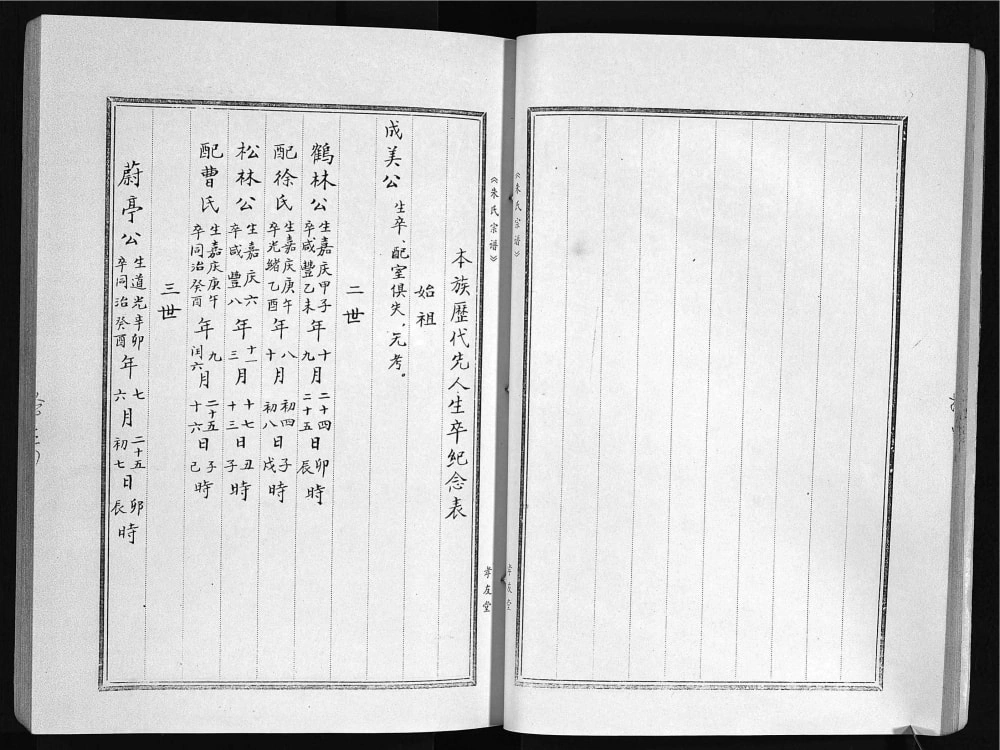 本族歷代先人生卒紀念表
始祖
成美公 生卒、配室俱失,无考。
二世
鶴林公 生嘉庆甲子年十月二十四日卯時
卒咸豐乙未年九月二十五日辰時
配徐氏 生嘉庆庚午年八月初四日子時
卒光緒乙酉年十月初八日戌時
松林公 生嘉庆六年十一月十七日丑時
卒咸豐八年三月十三日子時
配曹氏 生嘉庆庚午年九月二十五日子時
卒同治癸酉年闰六月十六日巳時
三世
蔚亭公 生道光辛卯年七月二十五日卯時
卒同治癸酉年六月初七日辰時
《朱氏宗谱》
孝友堂
《朱氏宗谱》
孝友堂